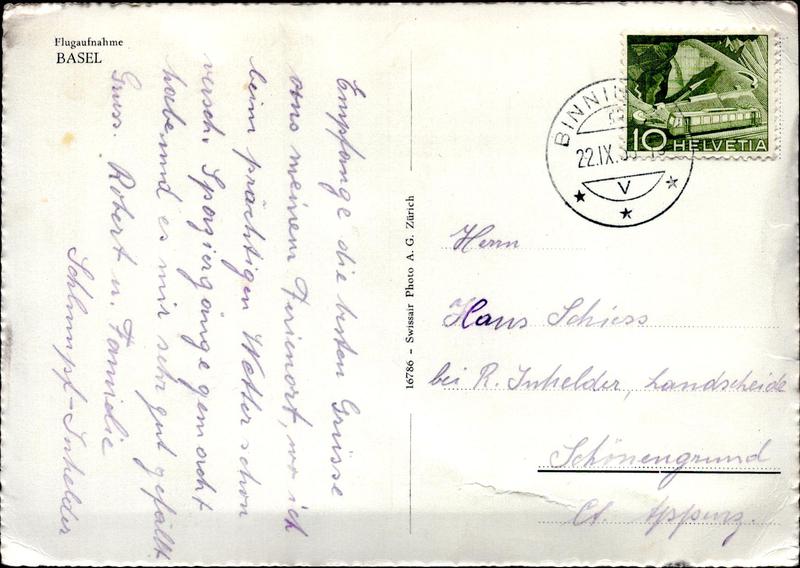 Flugaufnahme
BASEL
Empfange die besten Grüsse
aus meinem Ferienort, wo ich
beim prächtigen Wetter schon
versch. Spaziergänge gemacht
habe und es mir sehr gut gefällt.
Gruss. Robert u. Familie
Schlumpf-Inhelder
16786 – Swissair Photo A. G. Zürich
BINNIN
22.IX.5
V
10 HELVETIA
Herrn
Hans Schiess
bei R. Inhelder, Landscheide
Schönengrund
Ct. Appenz.